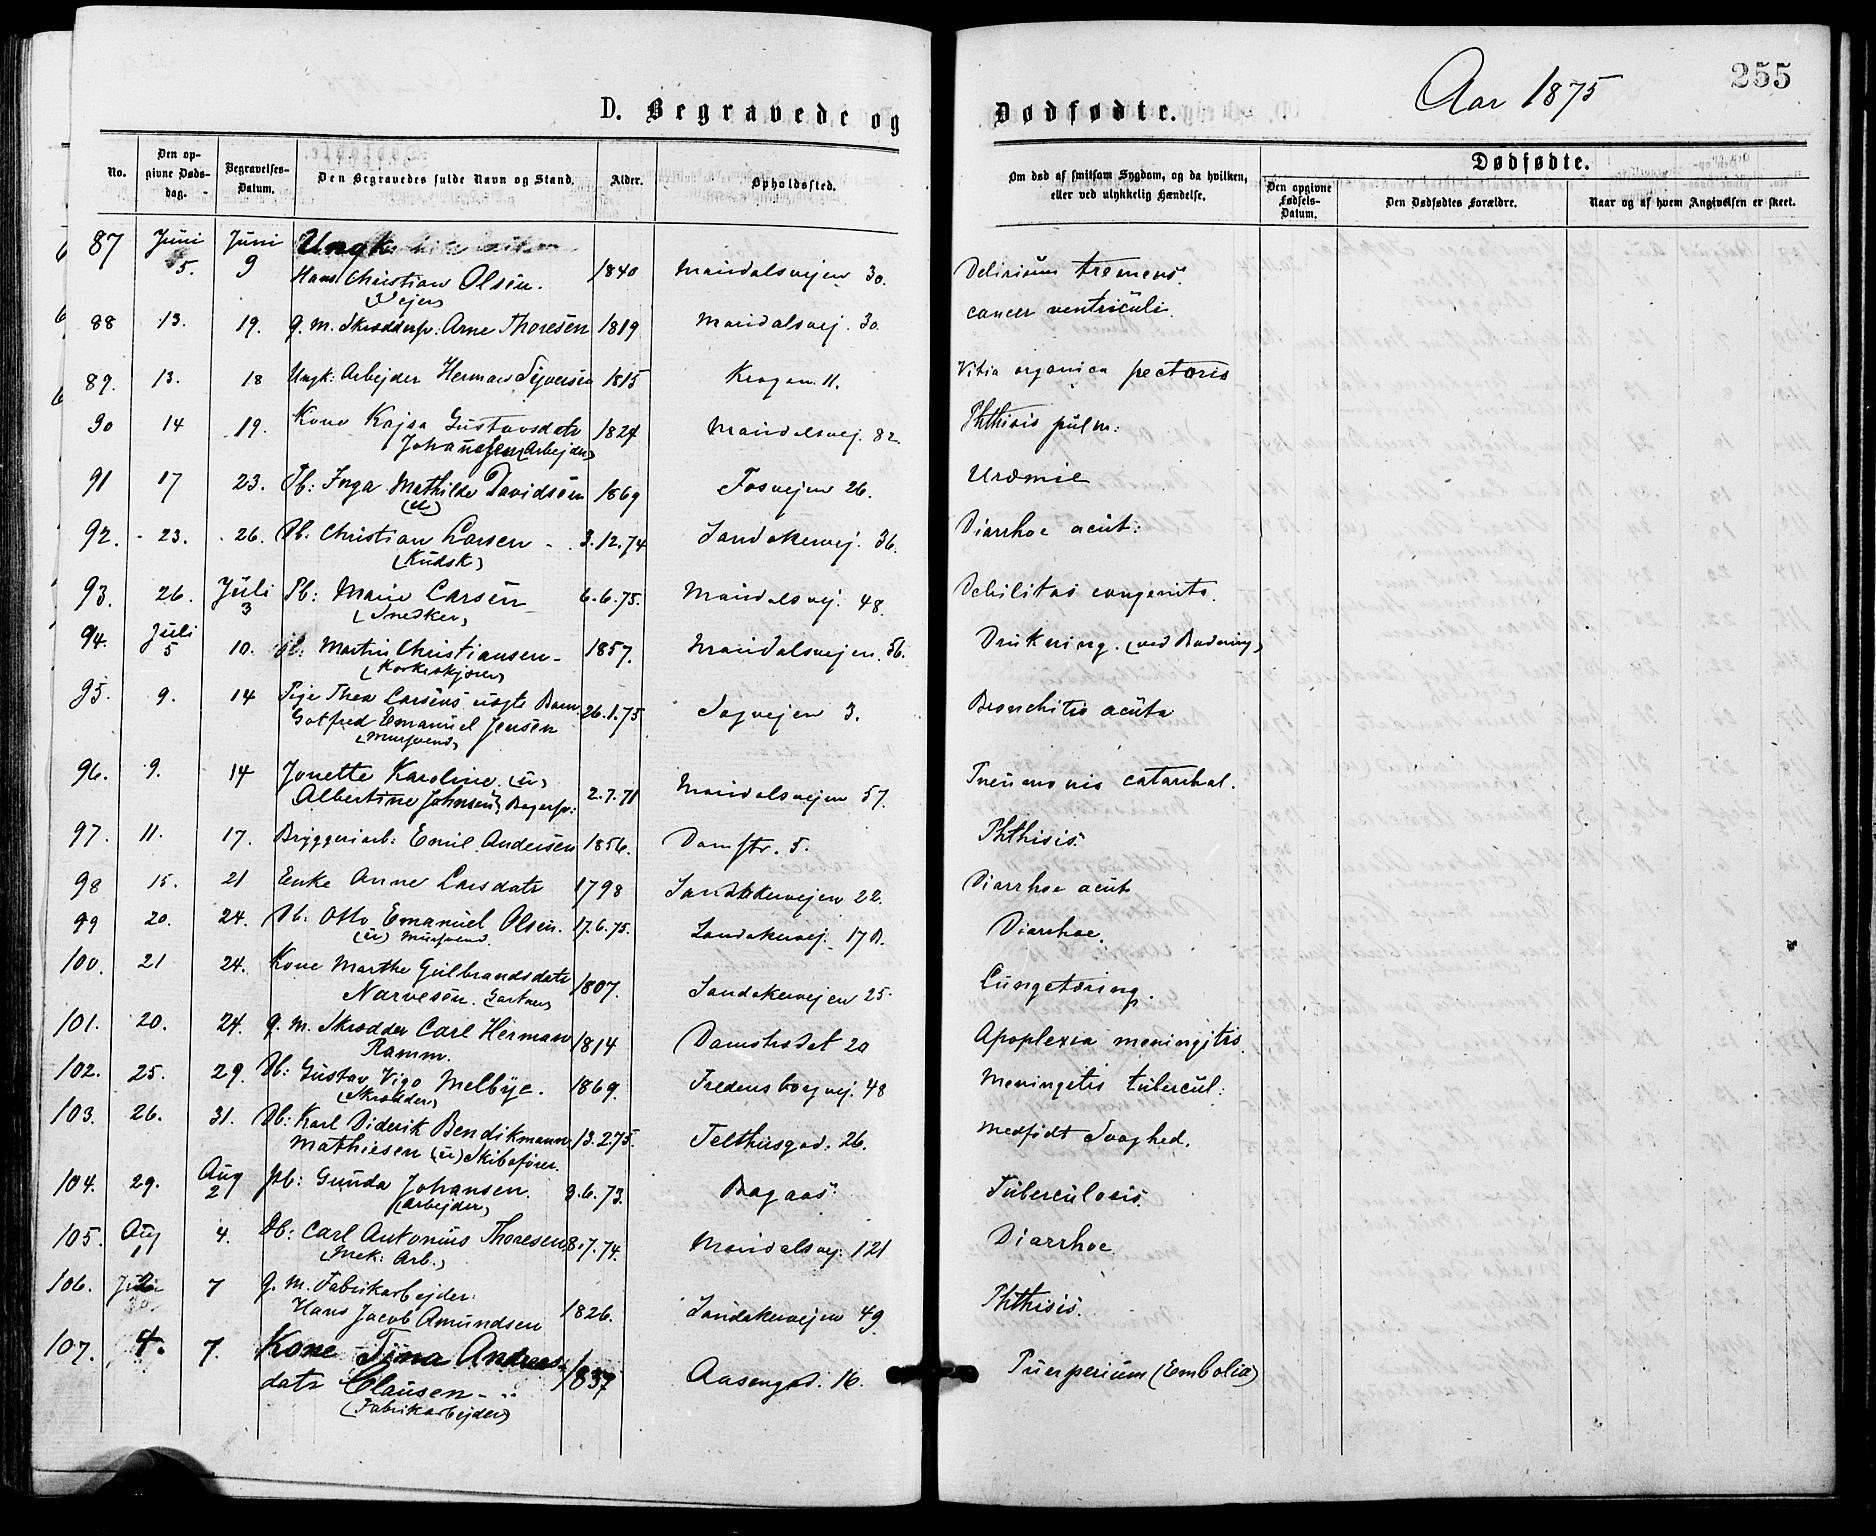 Aar 1875
255
D. Begravede og Dødfødte.
No.
Den op-
givne Døds-
dag.
Begravelses-
Datum.
Den Begravedes fulde Navn og Stand.
Alder.
Opholdssted.
Om død af smitsom Sygdom, og da hvilken,
eller ved ulykkelig Hændelse.
Dødfødte.
Den opgivne
Fødsels-
Datum.
Den Dødfødtes Forældre.
Naar og af hvem Angivelsen er skeet.
87 Juni 5. Juni 9 Ungk
Hans Christian Olsen. 1840 Maridalsveien 30. Delirium tremens.
(Vejer)
88 13. 19. g. m. Skræddersv: Arne Thoresen 1819 Maridalsvej. 30. cancer ventriculi.
89. 13. 18 Ungk: Arbejder Herman Syversen 1815 Krogen 11. Vitia organica pectoris
90 14 19. Kone Kajsa Gustavsdatr 1824 Maridalsvej. 82. Phthisis pulm:
Johannesen (Arbejder)
91 17 23. Pb: Inga Mathilde Davidsen 1869 Fosvejen 26. Uræmie
(u)
92. 23. 26. Db. Christian Larsen 3.12.74 Sandakervej. 36. Diarrhoe acut:
(Kudsk)
93. 26. Juli 3 Pb: Marie Larsen 6.6.75. Maridalsvej. 48 Debilitas congenita.
(Snedker)
94. Juli 5 10. Martin Christiansen 1857. Maridalsvejen. 56. Drukning. (ved Badning)
95. 9. 14 Pige Thea Larsens uægte Barn
Gotfred Emanuel Jensen 26.1.75 Sagvejen 3. Bronchitis acuta
(Mursvend)
96. 9. 14 Jonette Karoline (u)
Albertine Johnsen, Bagersv: 2.7.71 Maridalsvejen 57. Pneumonia catarrhal.
97. 11. 17. Bryggeriarb: Emil Andersen 1856. Damstr. 5. Phthisis.
98 15. 21 Enke Anne Larsdatr 1798 Sandakervejen 22. Diarrhoe acut
99 20. 24. Db. Otto Emanuel Olsen. 17.6.75. Sandakervej. 17 B. Diarrhoe.
(u) Mursvend.
100. 21 24. Kone Marthe Gulbrandsdatr
Narvesen. Gartner) 1807. Sandakervejen 25. Lungetæring.
101. 20. 24. g. m. Skrædder Carl Herman
Ramm. 1814 Damstrædet 20 Apoplexia meningitis.
102. 25. 29. Db: Gustav Vigo Melbye. 1869. Fredensborgvej. 48 Meningitis tubercul:
(Skrædder)
103. 26. 31. Db: Karl Diderik Bendikmann
Mathiesen (u) Skibsfører. 13.2.75. Telthusgad. 26. Medfødt Svaghed.
104. 29. Aug 2 Pb: Gunda Johansen. 3.6.73. Bagaas. Tuberculosis.
(Arbejder)
105. Aug 1 4. Db: Carl Antonius Thoresen 8.7.74. Maridalsvej. 121 Diarrhoe.
(Mek: Arb.)
106. 7 g. m. Fabrikarbejder
Hans Jacob Amundsen 1826. Sandakervejen 49. Phthisis.
107. 4. 7. Kone Tina Anders-
datr Clausen 1837 Aasengad. 16. Puerperium (Embolia)
(Fabrikarbejder)